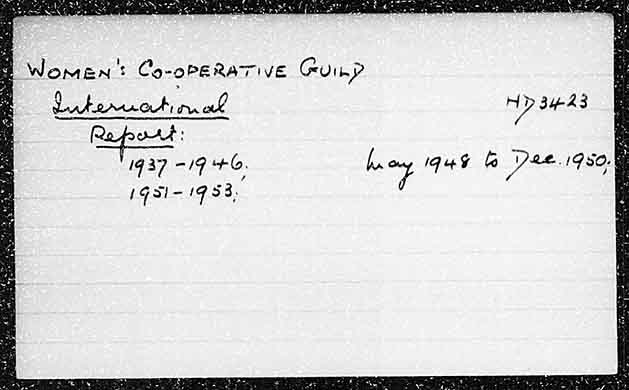 WOMEN'S CO-OPERATIVE GUILD
International HD3423
Report:
1937-1946; May 1948 to Dec. 1950;
1951-1953;